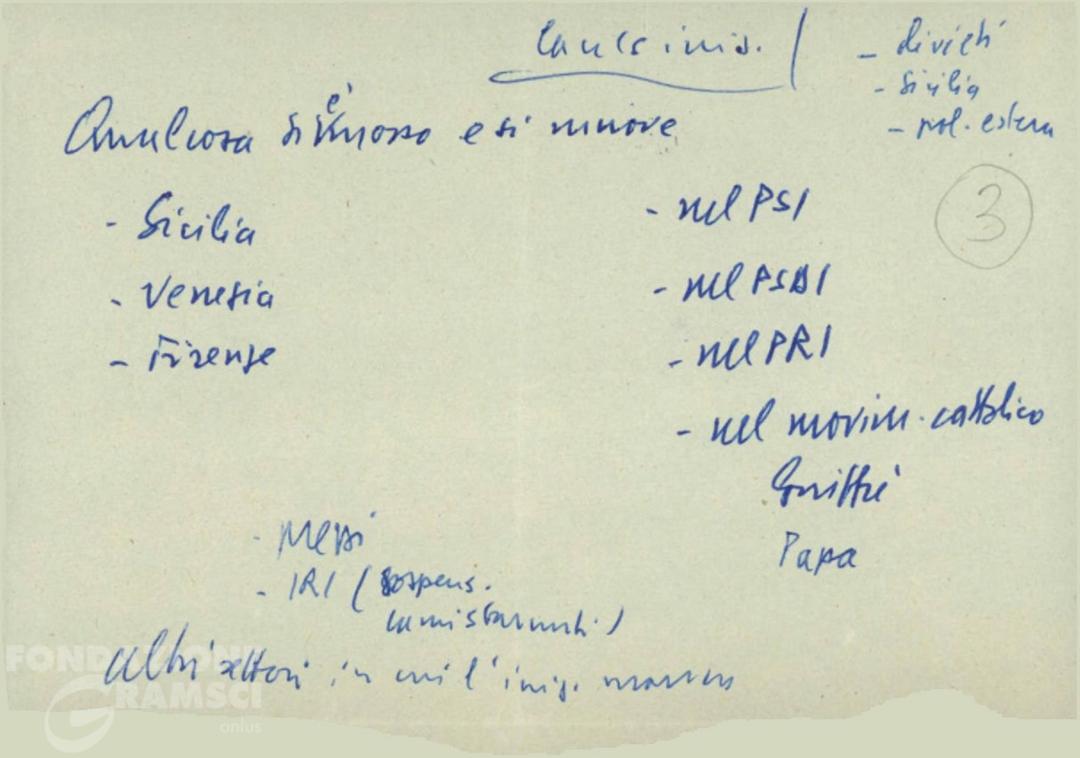 - divieti
- Sicilia
- pol. estera
Qualcosa si è mosso e si muove
3
- Sicilia
- Venezia
- Firenze
- nel PSI
- nel PSDI
- nel PRI
- nel movim. cattolico
Papa
- IRI (sospens.
altri settori in cui l'iniz.
FONDAZIONE
GRAMSCI
onlus